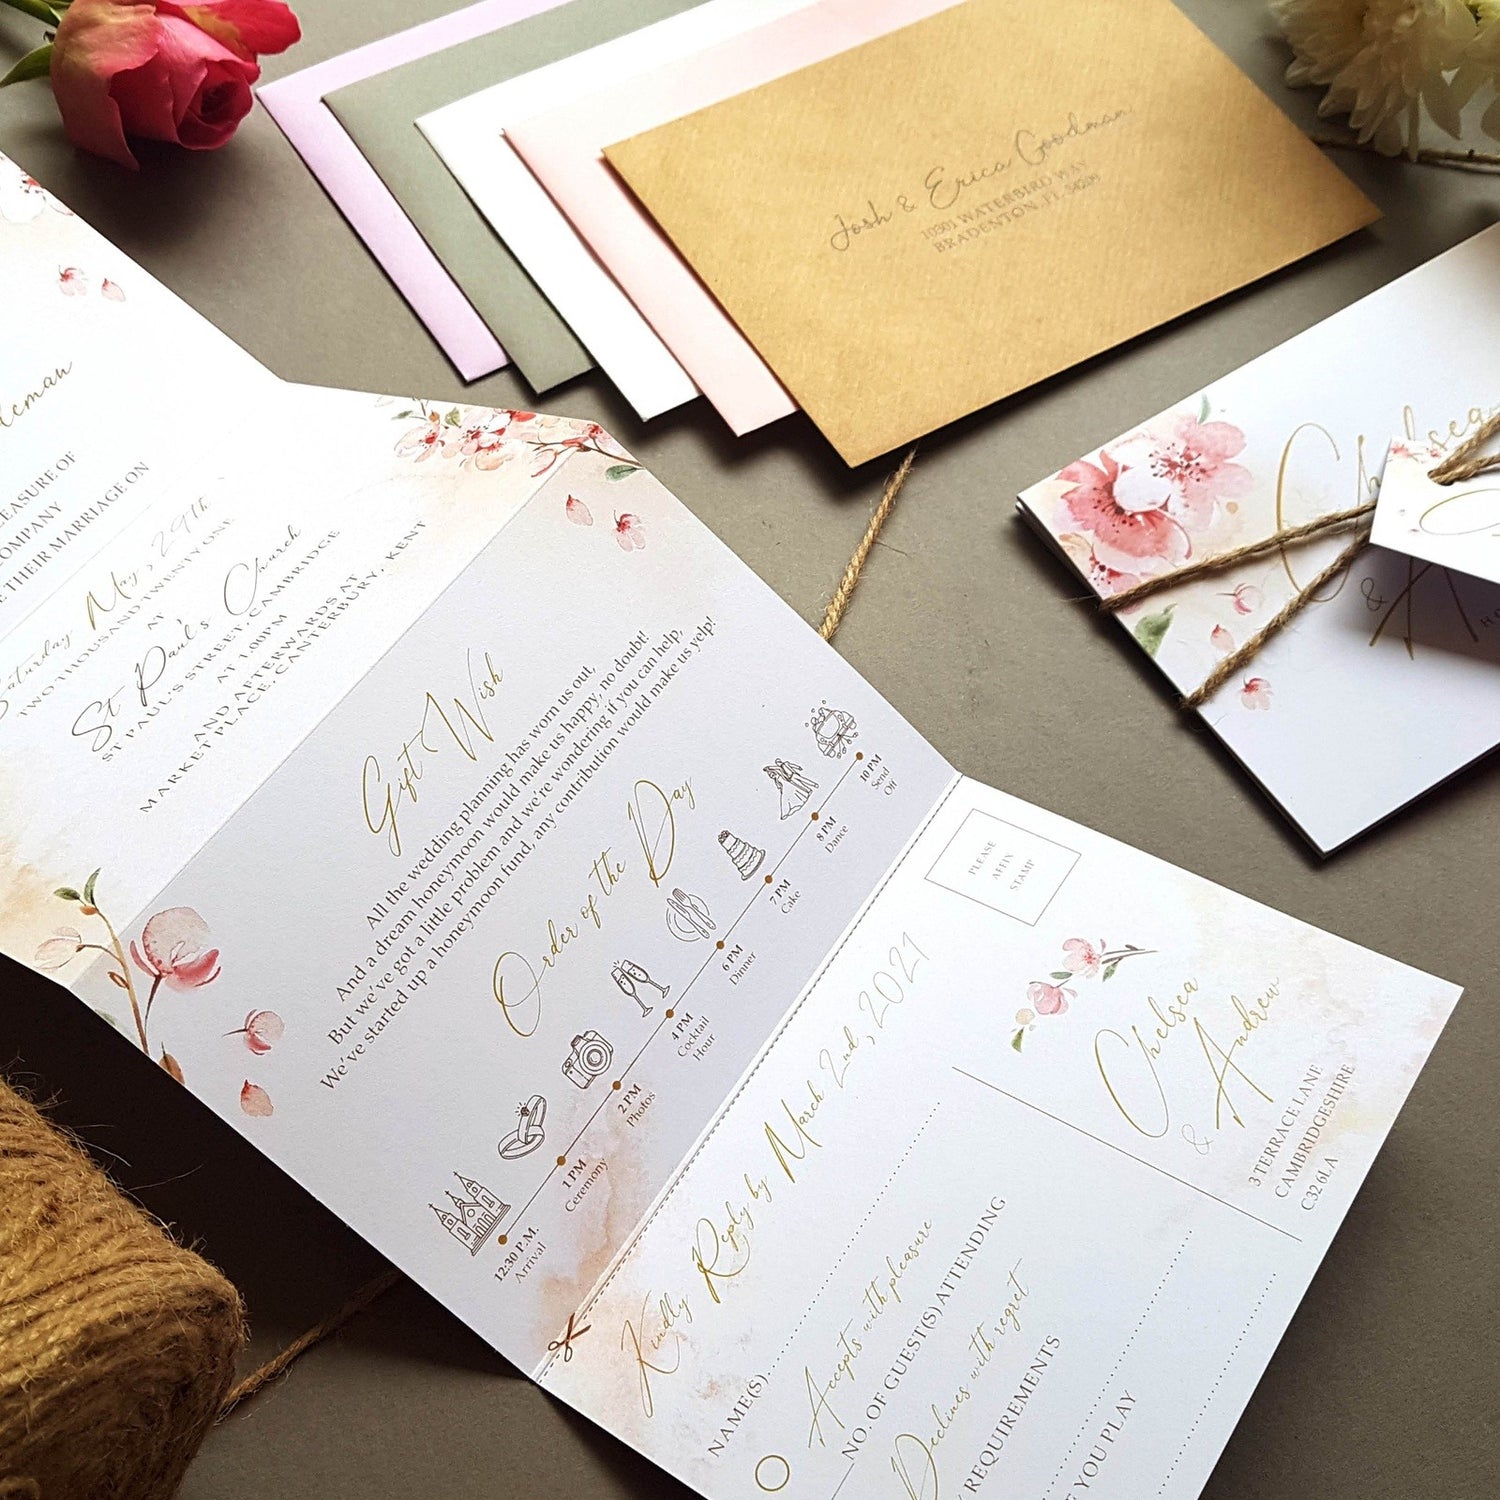 Josh & Erica Goodman
10301 WATERBIRD WAY
BRADENTON, FL 34209
Chelsea
&
COMPANY
THEIR MARRIAGE ON
Saturday May, 29th
TWO THOUSAND TWENTY ONE
AT
St Paul's Church
ST PAUL'S STREET, CAMBRIDGE
AT 1.00PM
AND AFTERWARDS AT
MARKET PLACE, CANTERBURY, KENT
Gift Wish
All the wedding planning has worn us out,
And a dream honeymoon would make us happy, no doubt!
But we've got a little problem and we're wondering if you can help,
We've started up a honeymoon fund, any contribution would make us yelp!
Order of the Day
12:30 P.M.
Arrival
1 PM
Ceremony
2 PM
Photos
4 PM
Cocktail
Hour
6 PM
Dinner
7 PM
Cake
8 PM
Dance
10 PM
Send
Off
PLEASE
AFFIX
STAMP
Chelsea
& Andrew
3 TERRACE LANE
CAMBRIDGESHIRE
C32 6LA
Kindly Reply by March 2nd, 2021
NAME(S)
Accepts with pleasure
NO. OF GUEST(S) ATTENDING
Declines with regret
REQUIREMENTS
YOU PLAY